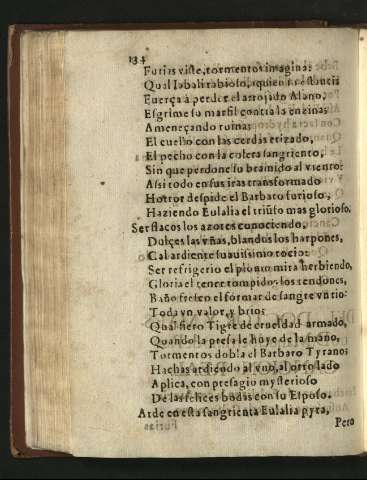 134
Furias viste, tormentos imagina:
Qual Iabali rabioso, quien
Fuerça à perder el arrojado Alano,
Esgrime su marfil contra la enzina;
Amenęçando ruina:
El cuello con las cerdas erizado,
El pecho con la colera sangriento,
Sin que perdone su bramido al viento:
Assi todo en sus iras transformado
Horror despide el Barbaro furioso,
Haziendo Eulalia el triũfo mas glorioso.
Ser flacos los azotes conociendo,
Dulçes las vñas, blandos los harpones,
Cal ardiente suauissimo rocio:
Ser refrigerio el plomo mira herbiendo,
Gloria el tener rompidos los tendones,
Baño fresco el formar de sangre vn rio:
Toda vn valor, y brio:
Qual fiero Tigre de crueldad armado,
Quando la presa le huye de la mano,
Tormentos dobla el Barbaro Tyrano;
Hachas ardiendo al vno, al otro lado
Aplica, con presagio mysterioso
De las felices bodas con su Esposo.
Arde en esta sangrienta Eulalia pyra,
Pero